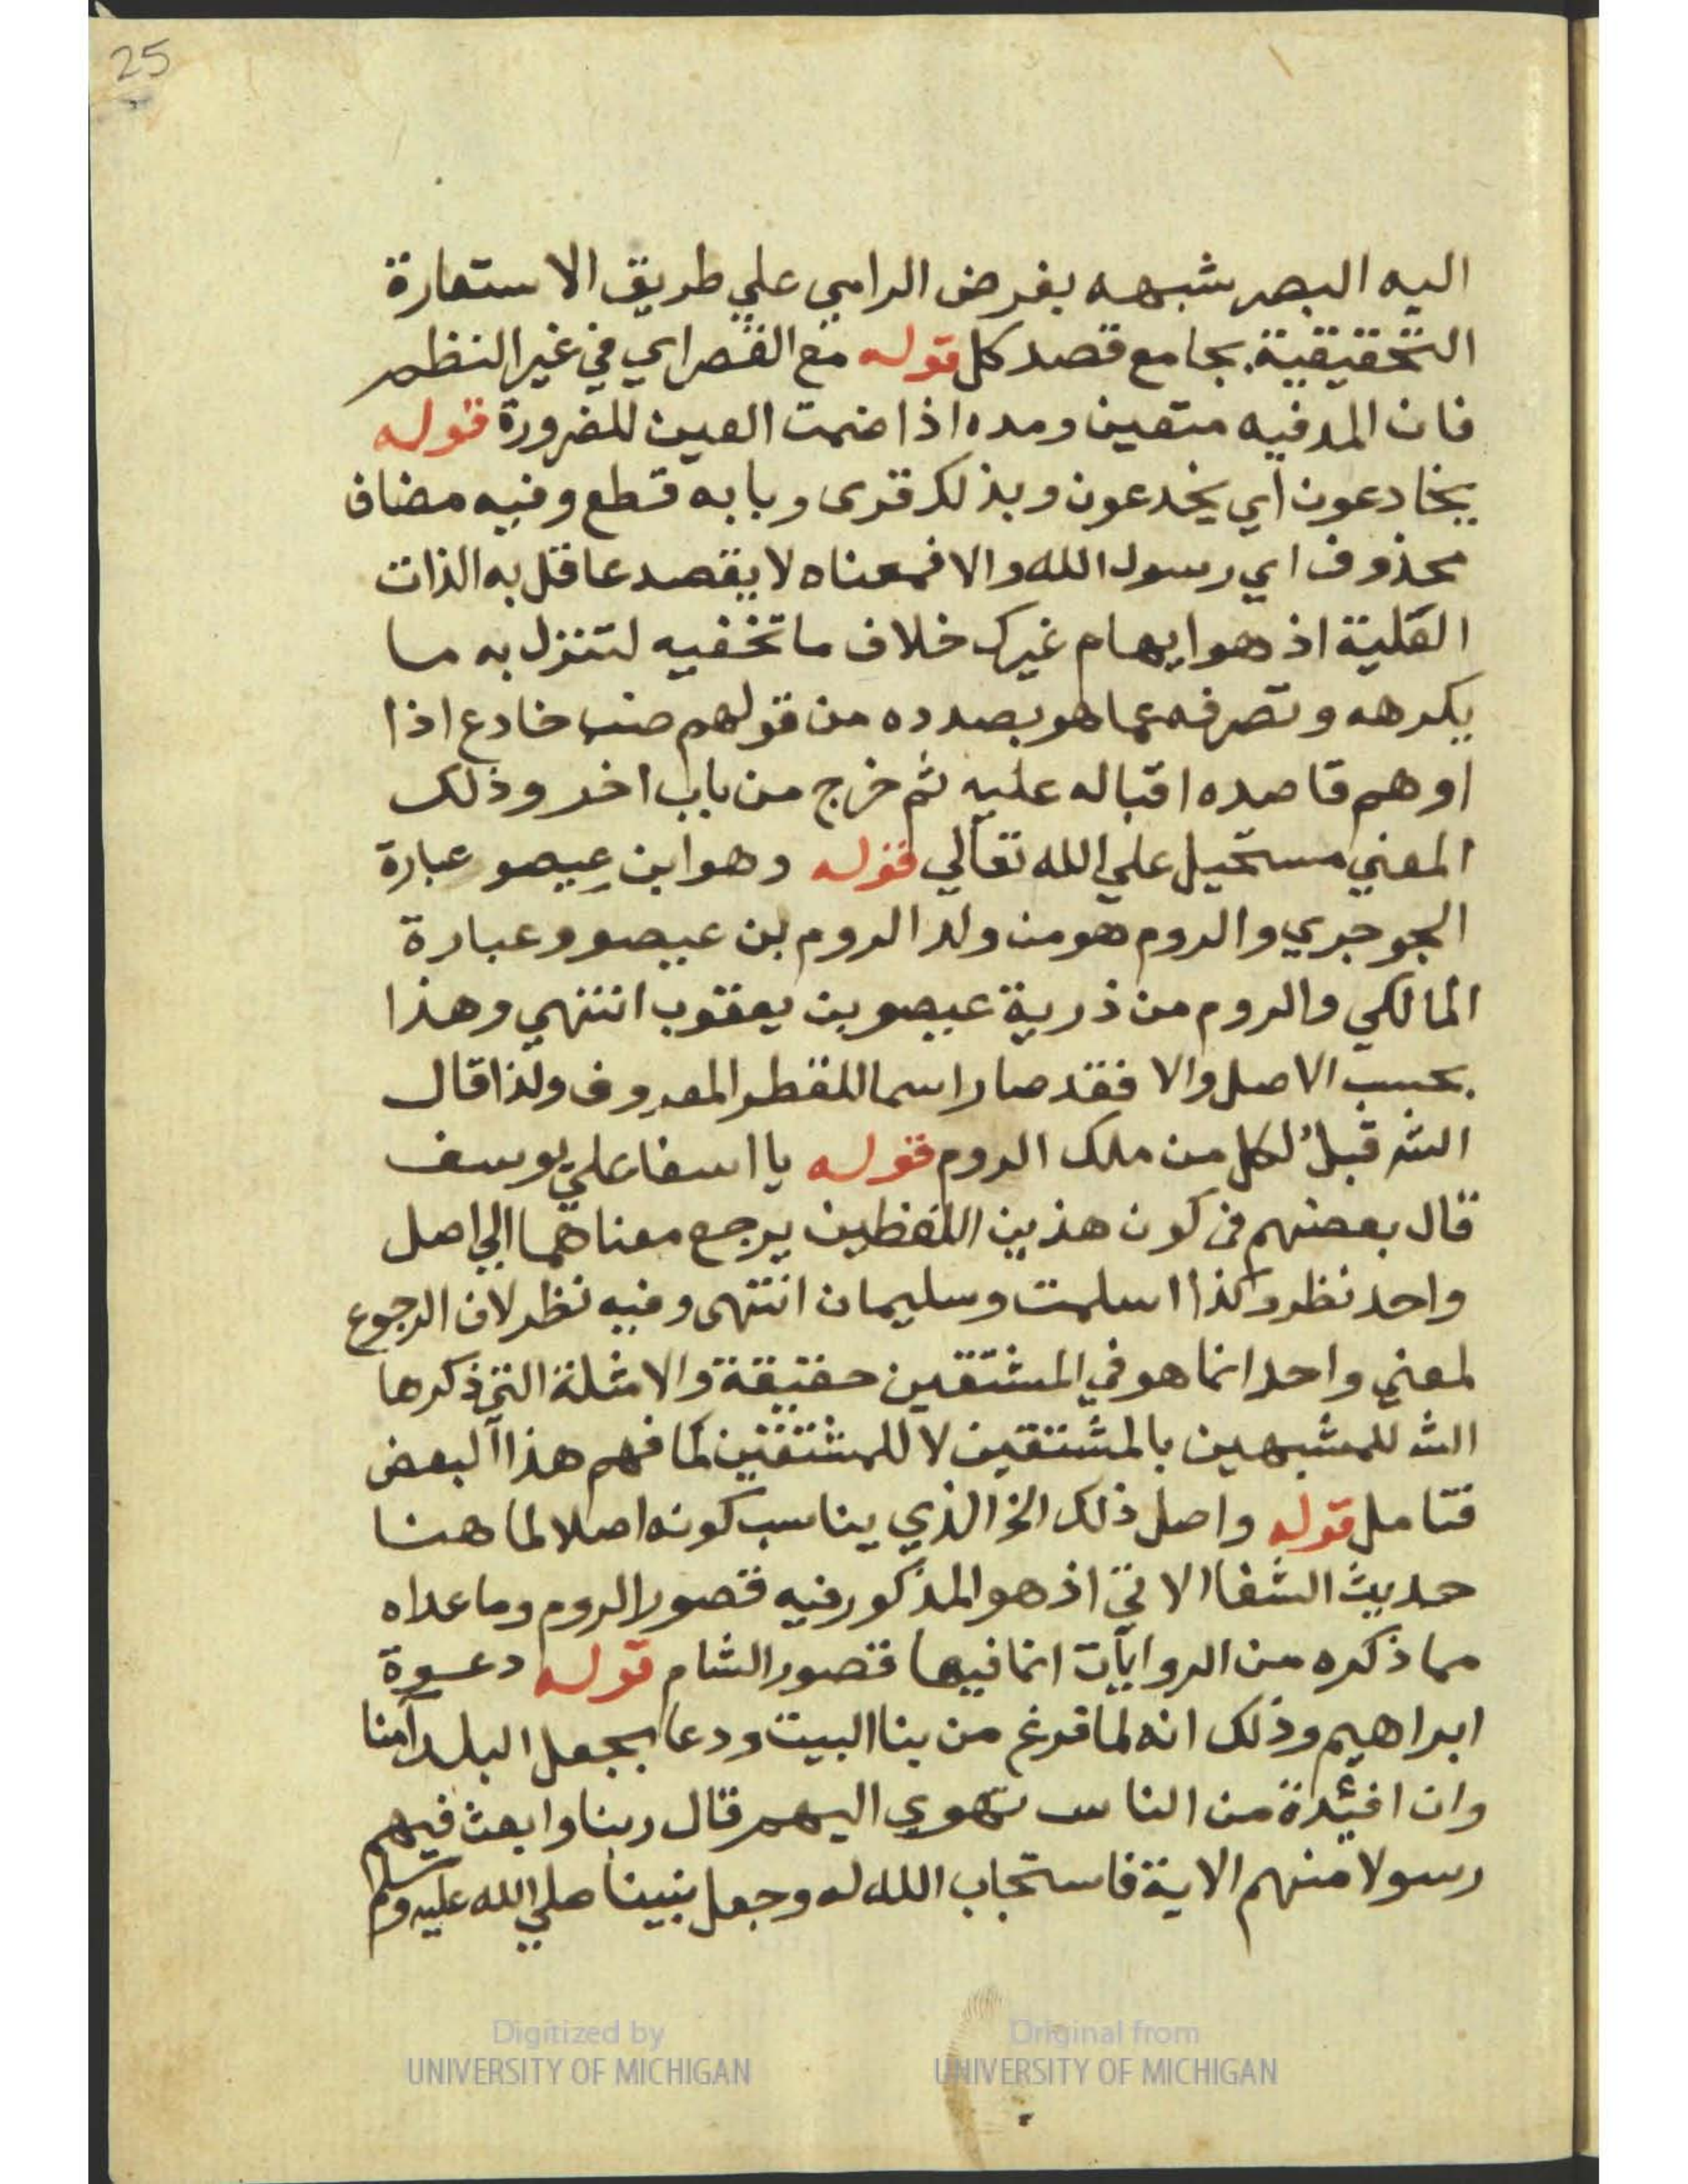 25
اليه البصر شبهه بغرض الرامي علي طريق الاستعارة
التحقيقية بجامع قصد كل قوله مع القصر اي في غير النظم
فان المد فيه متعين ومده اذا ضمت العين للضرورة قوله
يخادعون اي يخدعون وبذلك قرى وبابه قطع وفيه مضاف
محذوف اي رسول الله والا فمعناه لا يقصد عاقل به الذات
العلية اذ هو ايهام غيرك خلاف ما تخفيه لتنزل به ما
يكرهه وتصرفه عما هو بصدده من قولهم ضب خادع اذا
اوهم قاصده اقباله عليه ثم خرج من باب اخر وذلك
المعني مستحيل علي الله تعالي قوله وهو ابن عيصو عبارة
الجوجري والروم هو من ولد الروم بن عيصو وعبارة
المالكي والروم من ذرية عيصو بن يعقوب انتهي وهذا
بحسب الاصل والا فقد صار اسما للقطر المعروف ولذا قال
الش قبل لكل من ملك الروم قوله يا اسفا علي يوسف
قال بعضهم في كون هذين اللفظين يرجع معناهما الي اصل
واحد نظر وكذا اسلمت وسليمان انتهى وفيه نظر لان الرجوع
لمعني واحد انما هو في المشتقين حقيقة والامثلة التي ذكرها
الش للمشبهين بالمشتقين لا للمشتقين كما فهم هذا البعض
فتامل قوله واصل ذلك الخ الذي يناسب كونه اصلا لما هنا
حديث الشفا الاتي اذ هو المذكور فيه قصور الروم وما عداه
مما ذكره من الروايات انما فيها قصور الشام قوله دعوة
ابراهيم وذلك انه لما فرغ من بنا البيت ودعا بجعل البلد آمنا
وان افئدة من الناس تهوي اليهم قال ربنا وابعث فيهم
رسولا منهم الاية فاستجاب الله له وجعل نبينا صلي الله عليه وسلم
Digitized by
UNIVERSITY OF MICHIGAN
Original from
UNIVERSITY OF MICHIGAN